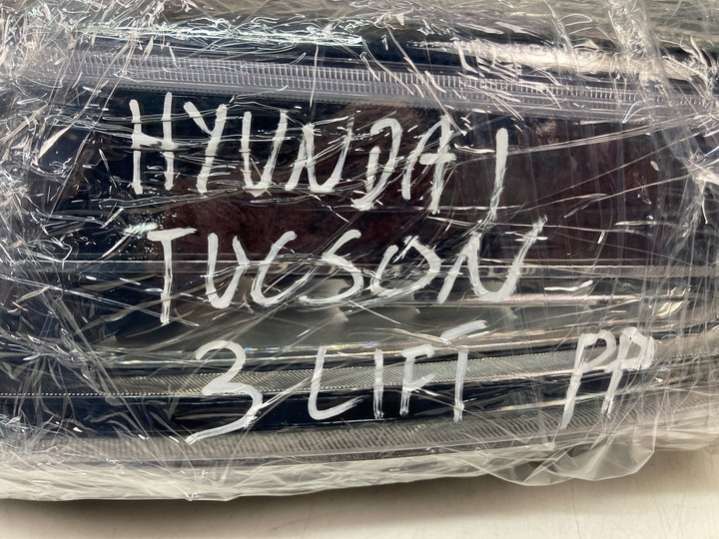 HYUNDAI
TUCSON
3 LIFT PP